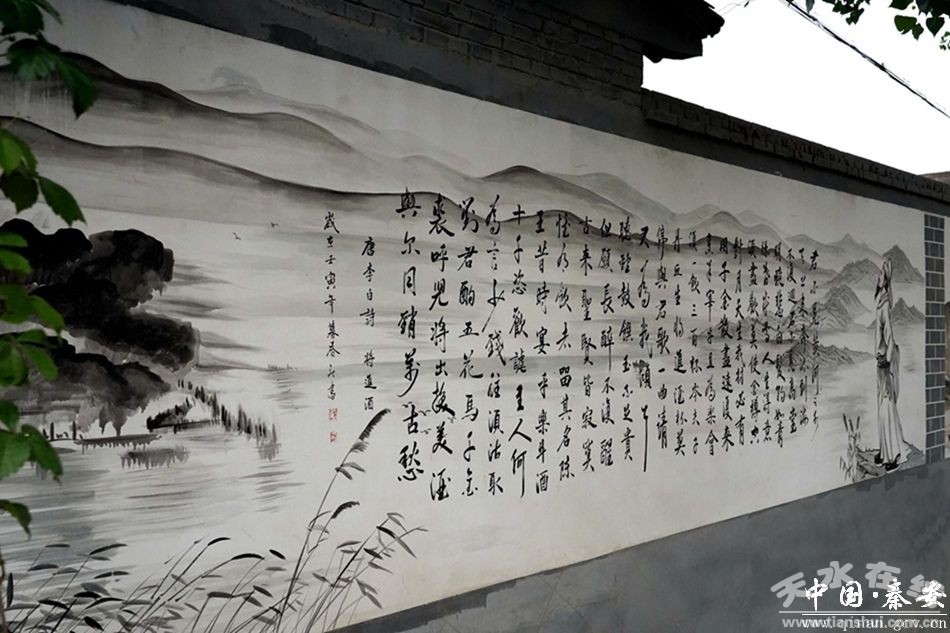 君不見黃河之水
天上來奔流到海
不復回君不見高堂
明鏡悲白髮朝如青
絲暮成雪人生得意
須盡歡莫使金樽空
對月天生我材必有
用千金散盡還復來
烹羊宰牛且為樂會
須一飲三百杯岑夫子
丹丘生將進酒杯莫
停與君歌一曲請
君為我傾耳
聽鐘鼓饌玉不足貴
但願長醉不復醒
古來聖賢皆寂寞
惟有飲者留其名陳
王昔時宴平樂斗酒
十千恣歡謔主人何
為言少錢徑須沽取
對君酌五花馬千金
裘呼兒將出換美酒
與爾同銷萬古愁
唐李白詩 將進酒
歲在壬寅年暮春 書
天水在线
中国·秦安
www.tianshui.com.cn
www.qinan.gov.cn